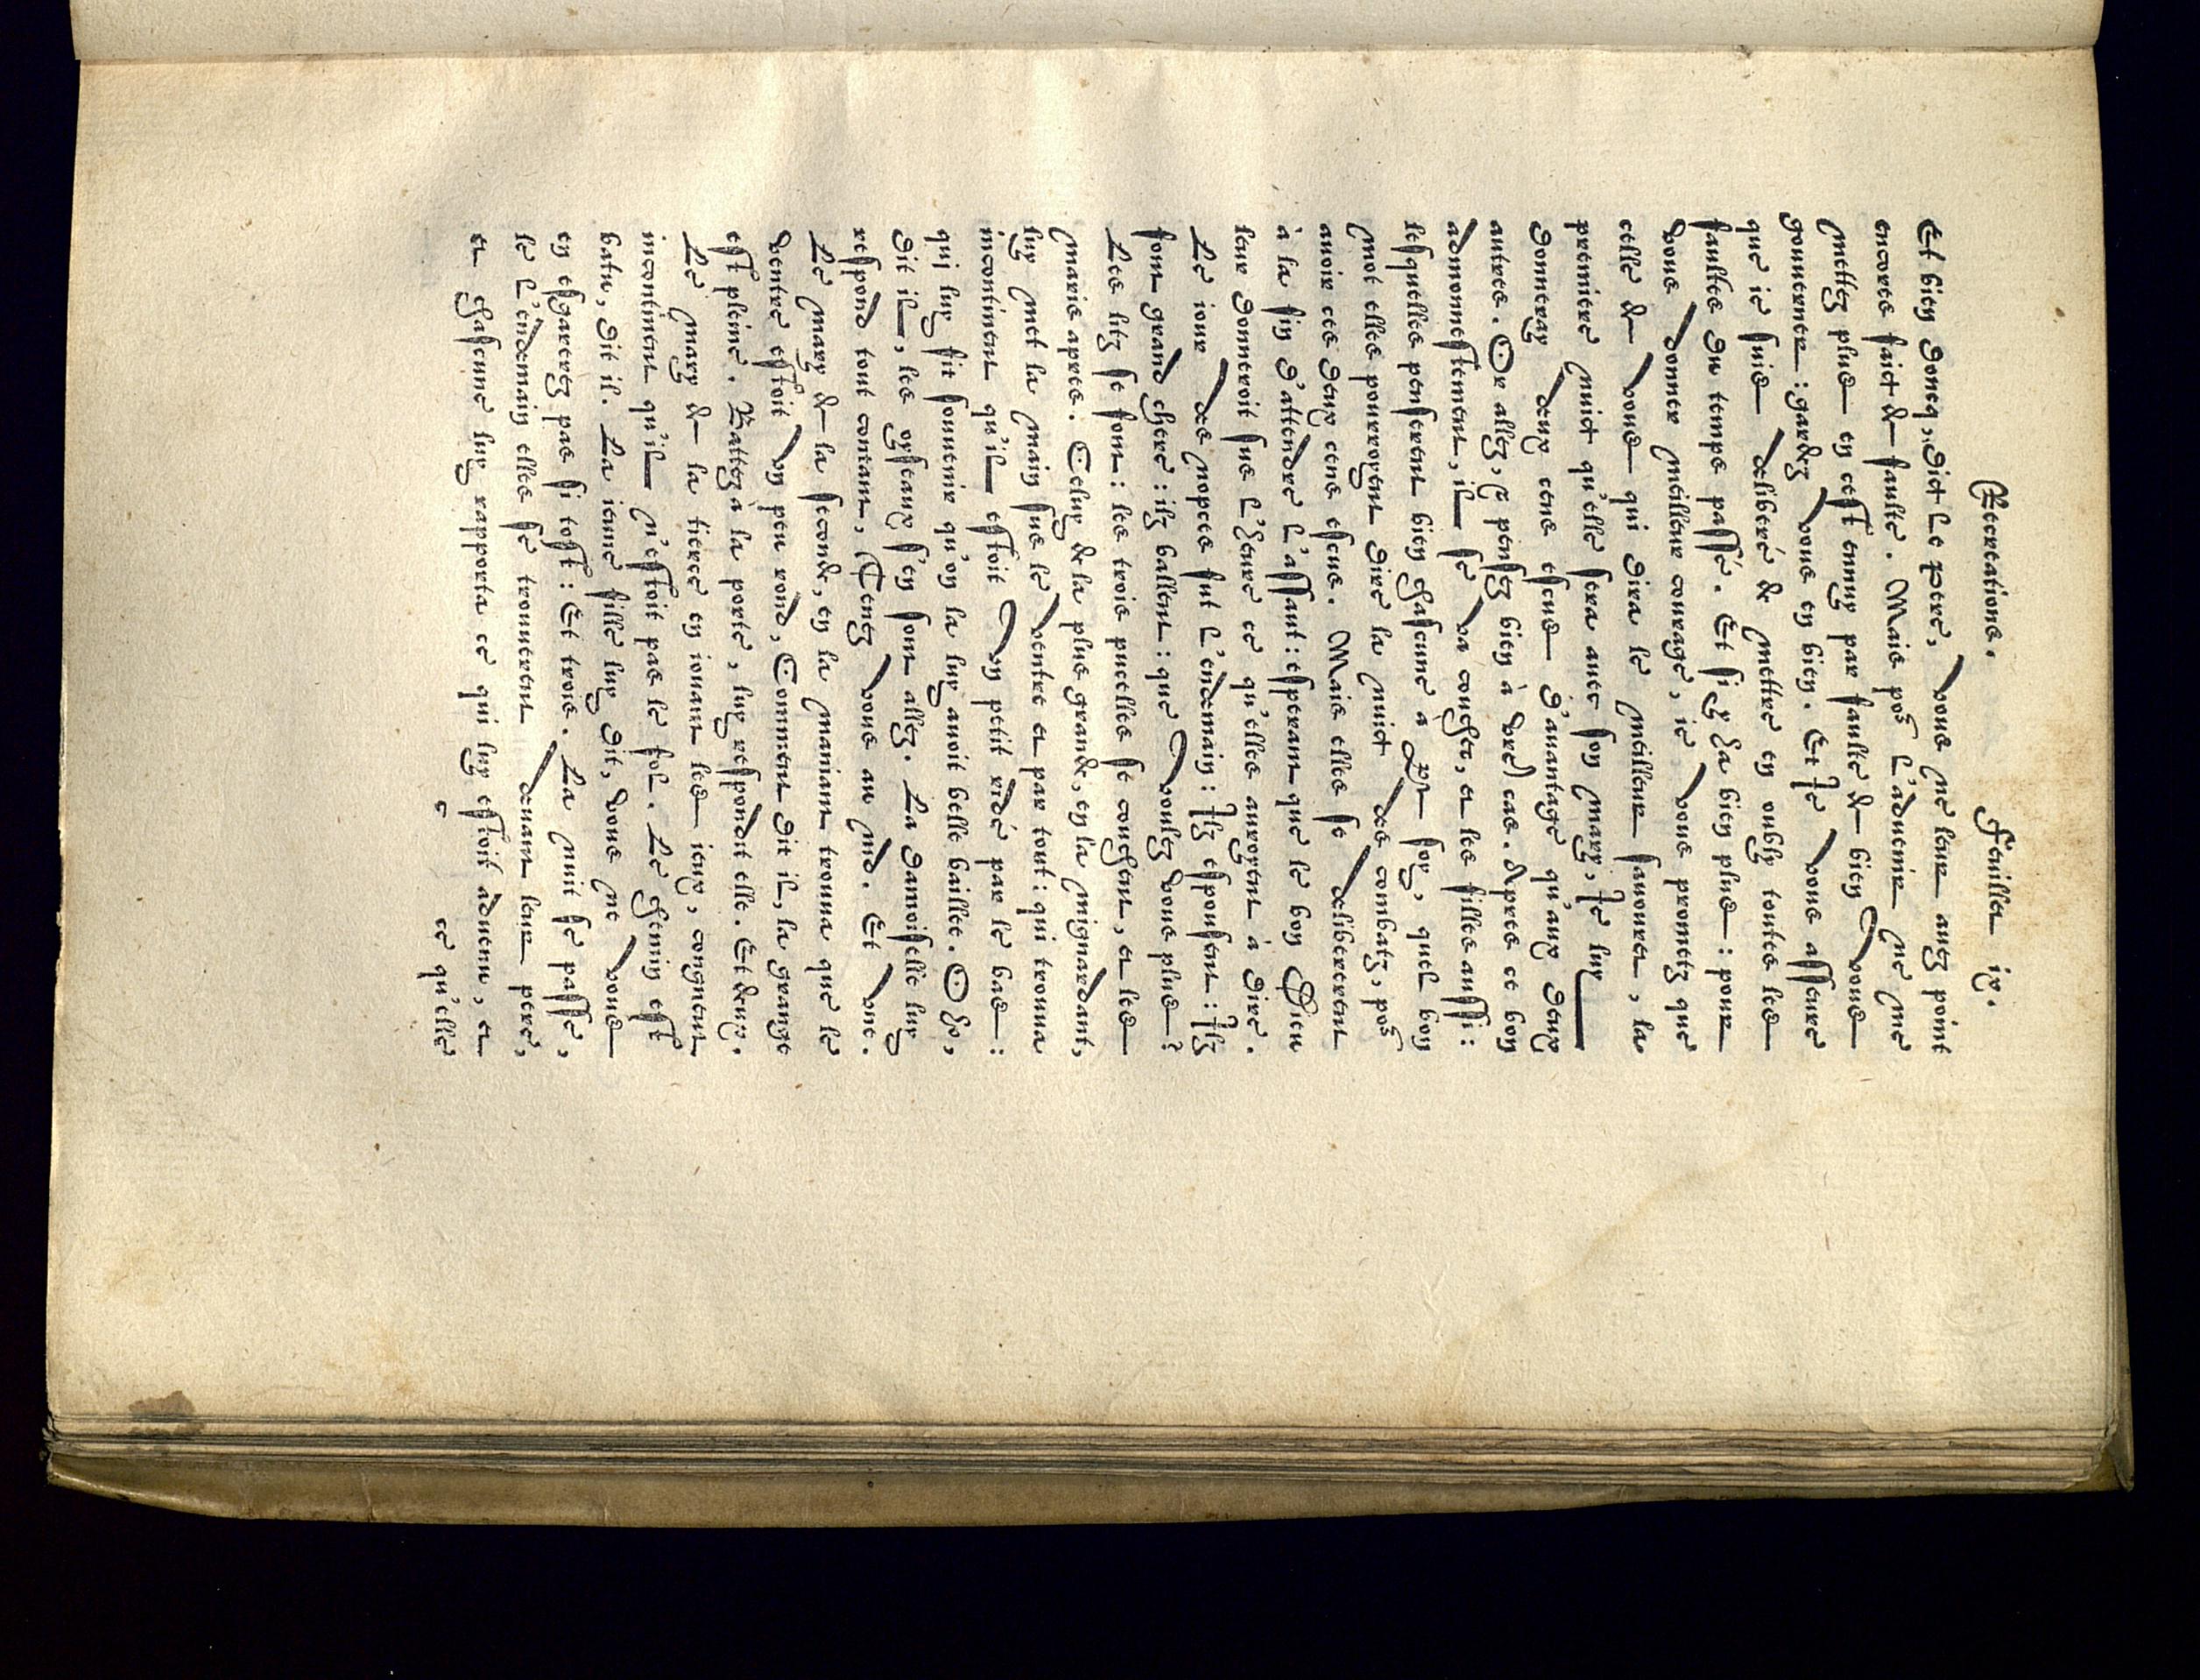 Recreations. Feuillet ix.
Et bien doncq, dict le pere, vous ne leur auez point
encores faict de faulte. Mais po9 l'aduenir ne me
mettez plus en cest ennuy par faulte de bien vous
gouuerner : gardez vous en bien. Et Ie vous asseure
que ie suis deliberé de mettre en oubly toutes les
faultes du temps passé. Et si y ha bien plus : pour
vous donner meilleur courage, ie vous prometz que
celle de vous qui dira le meilleur sauouret, la
premiere nuict qu'elle sera auec son mary, Ie luy
donneray deux cens escus d'auantage qu'aux deux
autres. Or allez, & pensez bien à vre) cas. Apres ce bon
admonnestement, il se va coucher, et les filles aussi :
lesquelles penserent bien chascune a part soy, quel bon
mot elles pourroyent dire la nuict des combatz, po9
auoir ces deux cens escus. Mais elles se delibererent
à la fin d'attendre l'assaut : esperant que le bon Dieu
leur donneroit sus l'heure ce qu'elles auroyent à dire.
Le iour des nopces fut l'endemain : Ilz espousent : Ilz
font grand chere : ilz ballent : que voulez vous plus ?
Les litz se font : les trois pucelles se couchent, et les
maris apres. Celuy de la plus grande, en la mignardant,
luy met la main sus le ventre et par tout : qui trouua
incontinent qu'il estoit vn petit ridé par le bas :
qui luy fit souuenir qu'on la luy auoit belle baillee. O ho,
dit il, les oyseaux s'en sont allez. La damoiselle luy
respond tout contant, Tenez vous au nid. Et vne.
Le mary de la seconde, en la maniant trouua que le
ventre estoit vn peu rond, Comment dit il, la grange
est pleine. Battez à la porte, luy respondit elle. Et deux.
Le mary de la tierce en iouant les ieux, congneut
incontinent qu'il n'estoit pas le fol. Le chemin est
batu, dit il. La ieune fille luy dit, vous ne vous
en esgarerez pas si tost : Et trois. La nuit se passe,
le l'endemain elles se trouuerent deuant leur pere,
et chascune luy rapporta ce qui luy estoit aduenu, et
c ce qu'elle